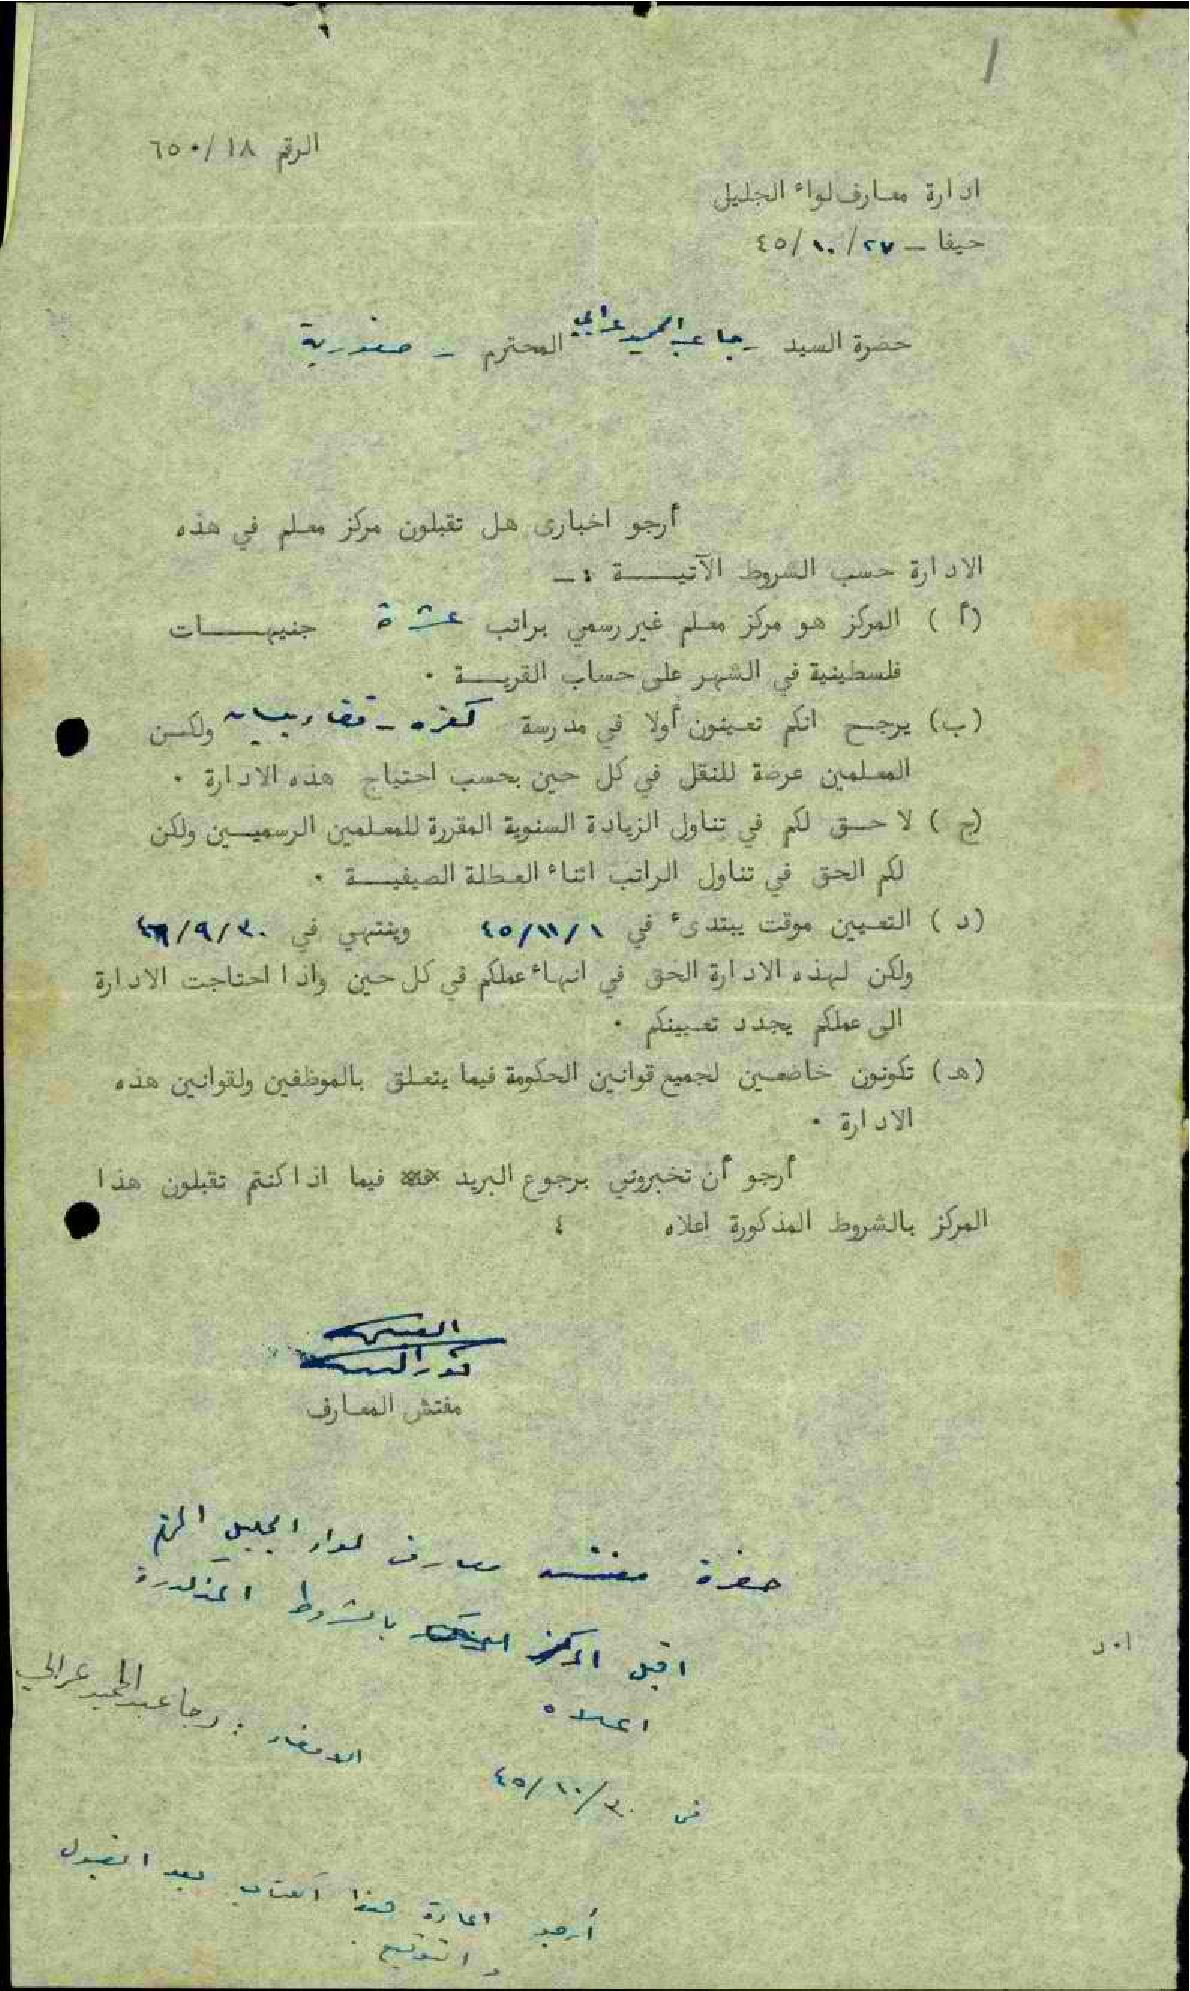 ١
الرقم ٦٥٠/١٨
ادارة معارف لواء الجليل
حيفا - ٤٥/١٠/٢٧
حضرة السيد رجا عبد الحميد عرابي المحترم - صفورية
أرجو اخبارى هل تقبلون مركز معلم في هذه
الادارة حسب الشروط الآتيــــة :-
(أ) المركز هو مركز معلم غير رسمي براتب عشرة جنيهــــات
فلسطينية في الشهر على حساب القريـــة .
(ب) يرجح انكم تعينون أولا في مدرسة كفره - قضاء بيسان ولكــن
المعلمين عرضة للنقل في كل حين بحسب احتياج هذه الادارة .
(ج) لا حــق لكم في تناول الزيادة السنوية المقررة للمعلمين الرسميــين ولكن
لكم الحق في تناول الراتب اثناء العطلة الصيفيـــة .
(د) التعيين موقت يبتدىء في ٤٥/١١/١ وينتهي في ٤٦/٩/٣٠
ولكن لهذه الادارة الحق في انهاء عملكم في كل حين واذا احتاجت الادارة
الى عملكم يجدد تعيينكم .
(هـ) تكونون خاضعين لجميع قوانين الحكومة فيما يتعلق بالموظفين ولقوانين هذه
الادارة .
أرجو أن تخبروني برجوع البريد فيما اذا كنتم تقبلون هذا
المركز بالشروط المذكورة اعلاه ٤
مفتش المعارف
حضرة مفتش معارف لواء الجليل المحترم
اقبل المركز بالشروط المذكورة
اعلاه
الامضاء : رجا عبد الحميد عرابي
في ٤٥/١٠/٣٠
أرجو اعادة هذا الكتاب بعد القبول
والتوقيع .